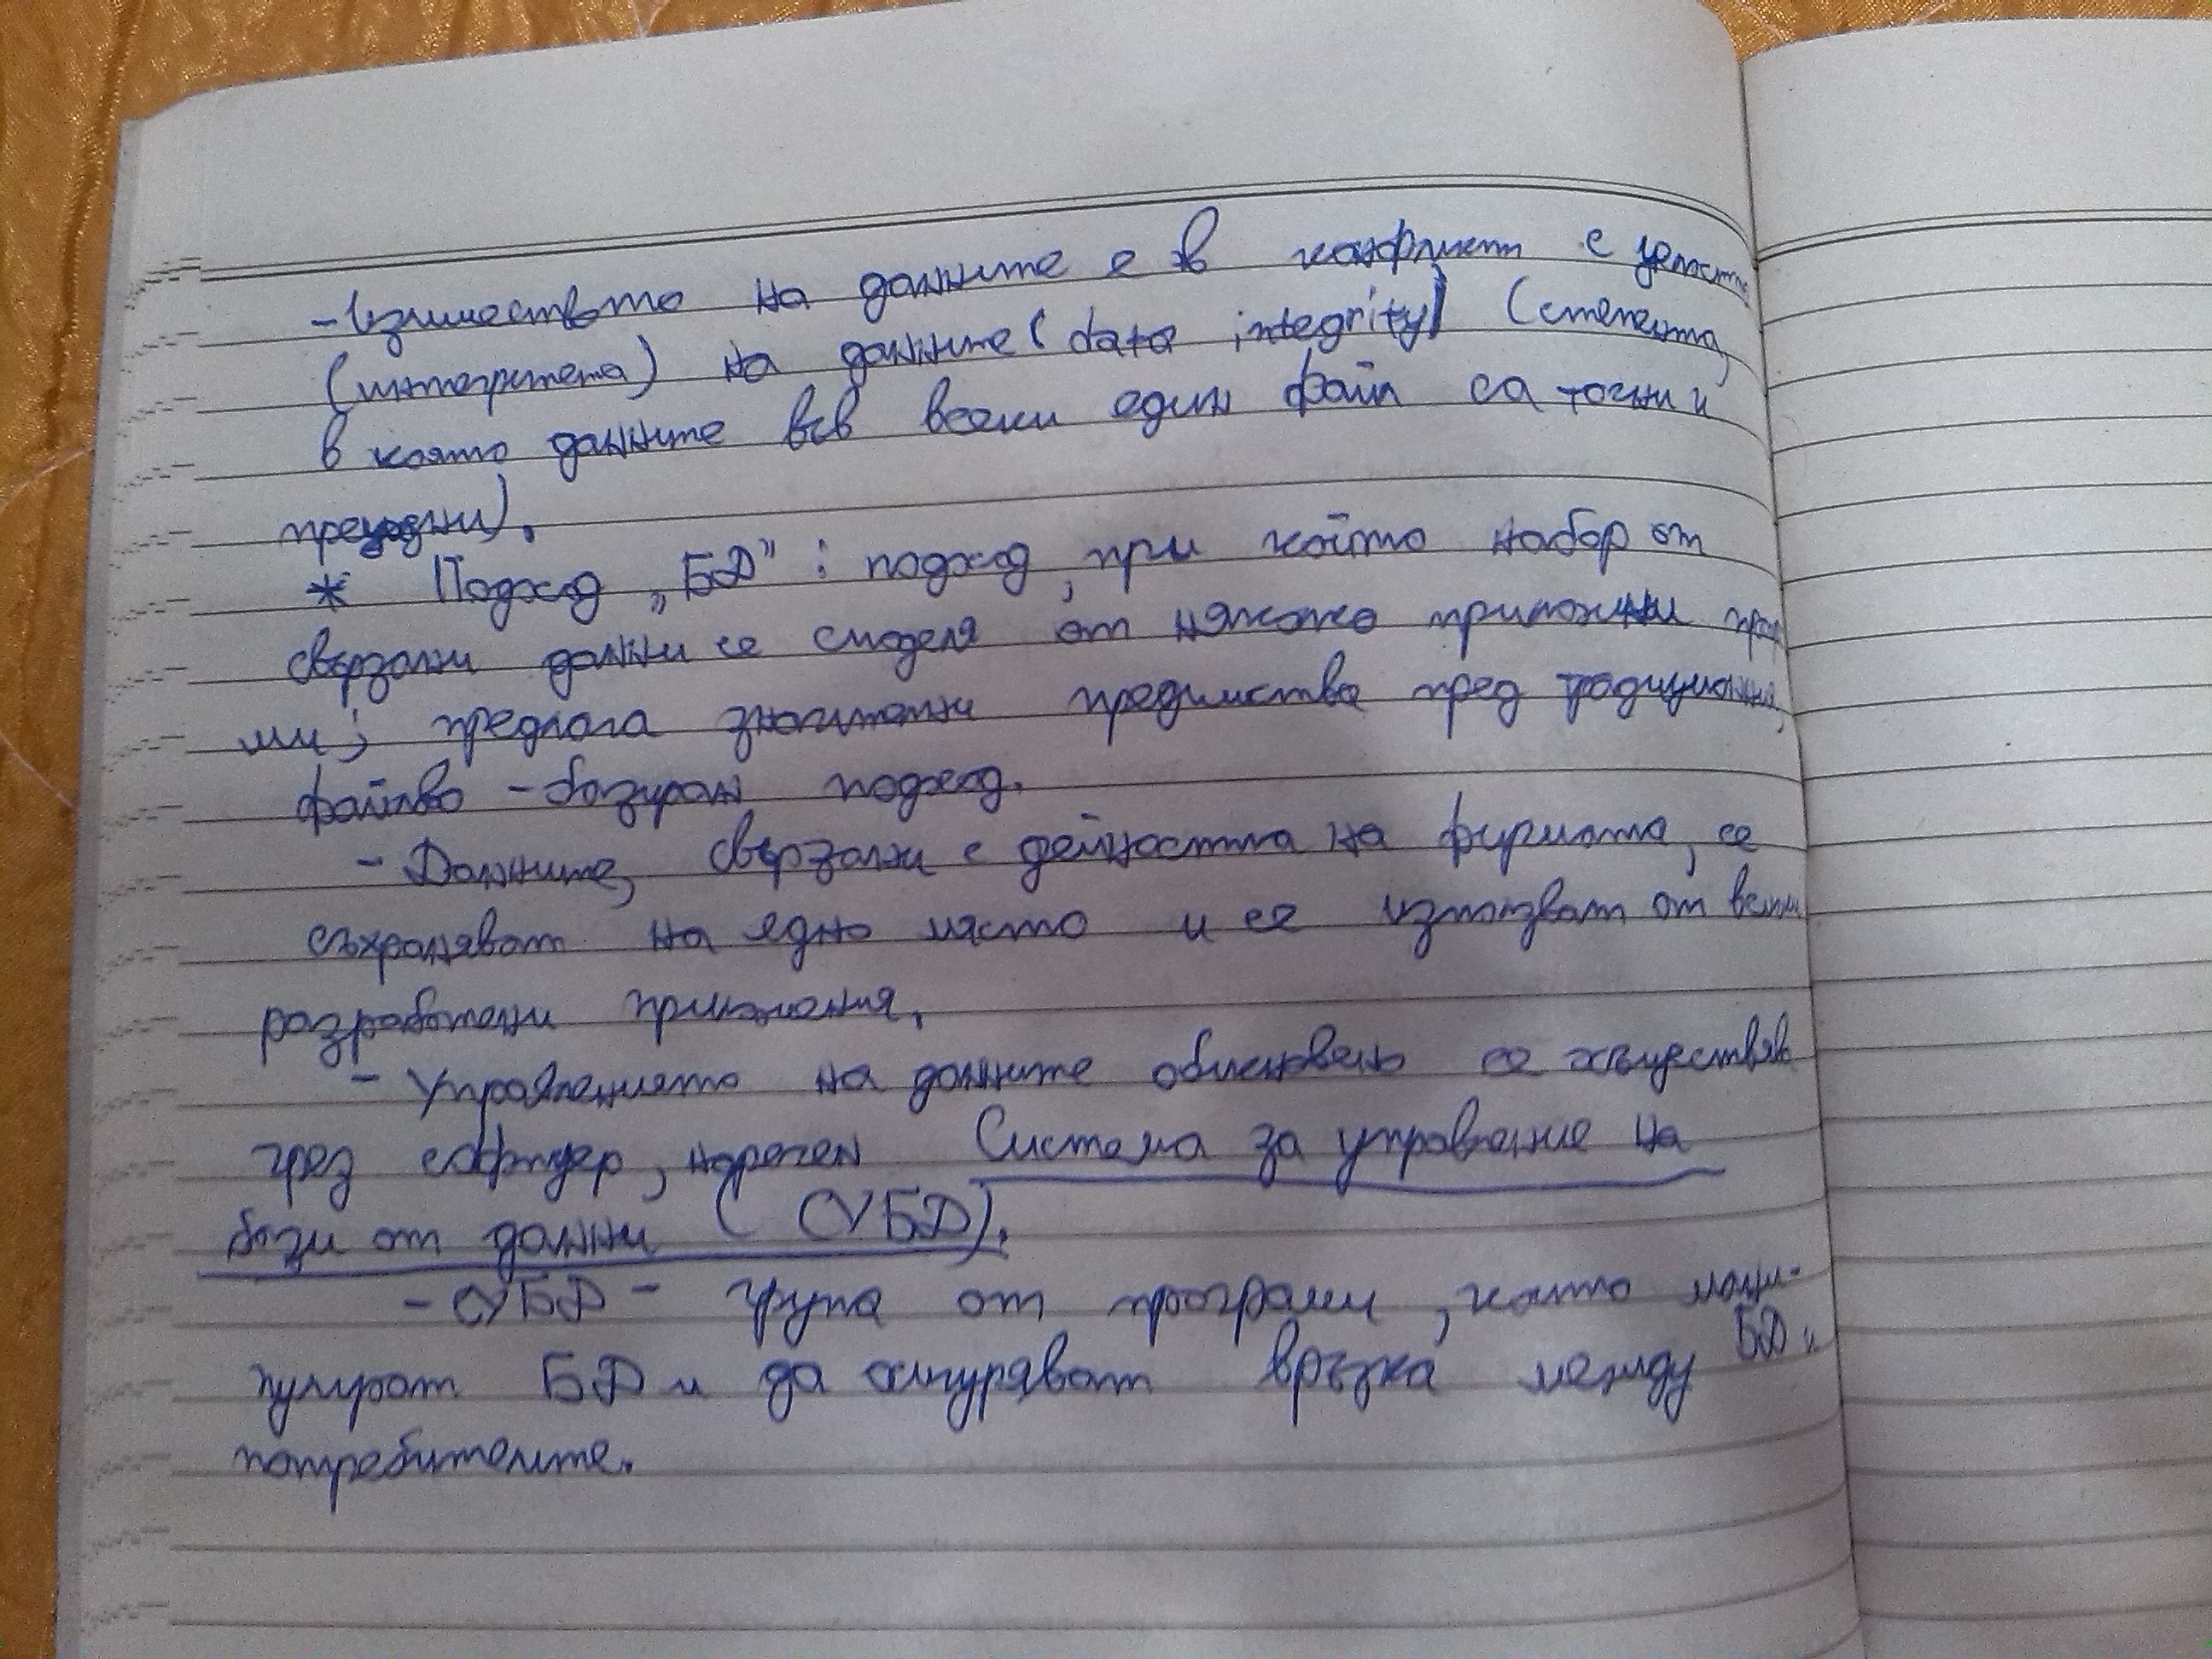 -Излишеството на данните е в конфликт с целостта
(интегритета) на данните (data integrity) (степента,
в която данните във всеки един файл са точни и
* Подход „БД": подход, при който набор от
свързани данни се споделя от няколко приложни програ
ми; предлага значителни предимства пред традиционния,
файлово-базиран подход.
- Данните, свързани с дейността на фирмата, се
съхраняват на едно място и се използват от всички
разработени приложения.
- Управлението на данните обикновено се осъществява
чрез софтуер, наречен Система за управление на
бази от данни (СУБД).
-СУБД- група от програми, които мани-
пулират БД и да осигуряват връзка между БД и
потребителите.